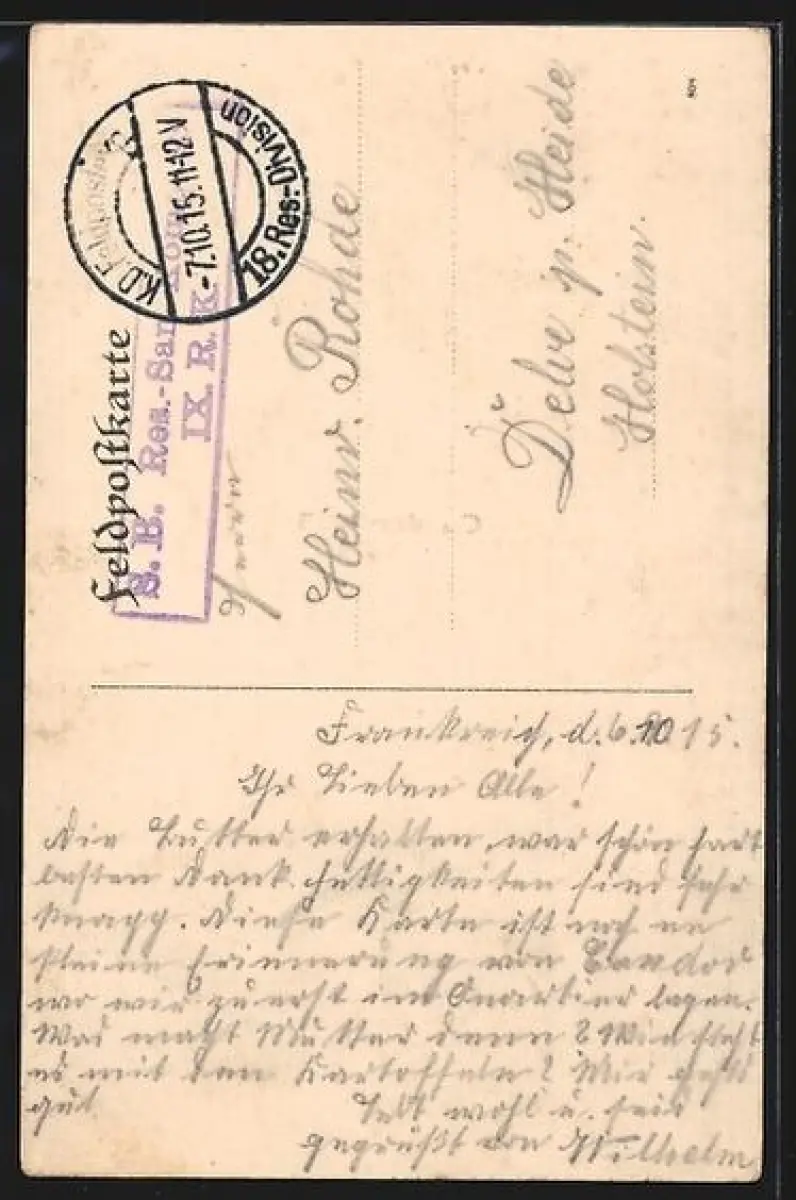 Feldpostkarte
K.D. Feldpost
-7.10.15.11-12V
18. Res.-Division
S. B. Res.-San
IX. R. K.
Herrn
Heinr. Rohde
Delve p. Heide
Holstein.
Frankreich, d. 6.10.15.
Ihr Lieben Alle!
Die Butter erhalten, war schön hart
besten Dank. Fettigkeiten sind sehr
knapp. Diese Karte ist noch en
kleine Erinnerung von
wo wir zuerst im Quartier lagen.
Was macht Mutter denn? Wie steht
es mit den Kartoffeln? Mir gehts
gut. Lebt wohl u. seid
gegrüßt von Wilhelm